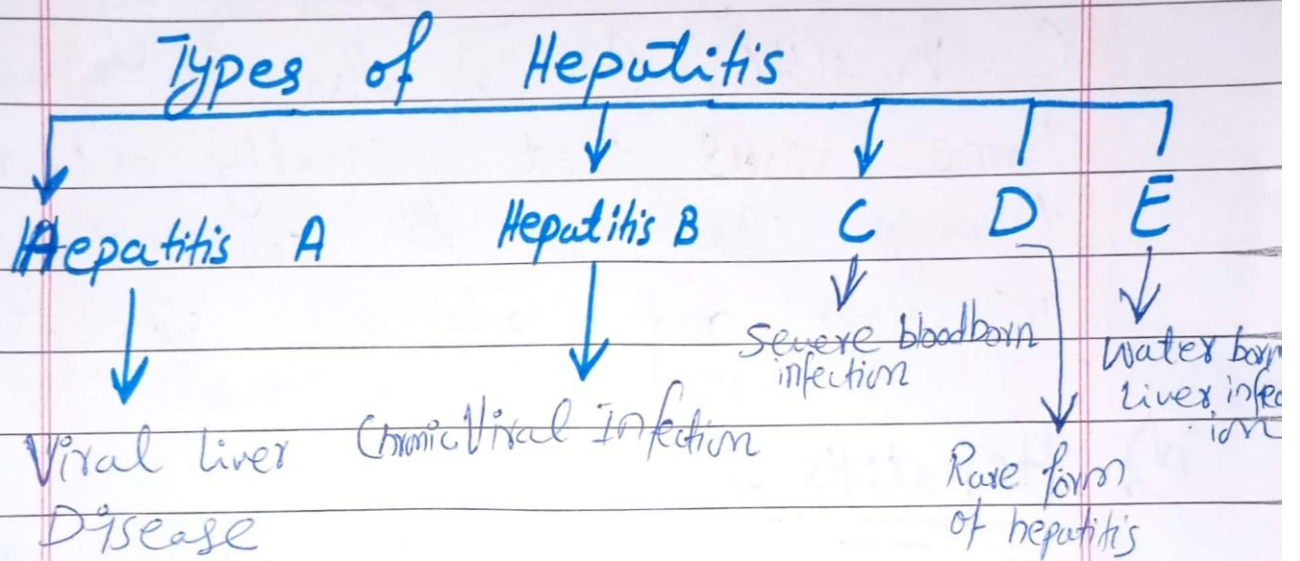 Types of Hepatitis
Hepatitis A
Hepatitis B
C
D
E
Viral Liver
Disease
Chronic Viral Infection
Severe bloodborn
infection
Rare form
of hepatitis
Water born
Liver infec
ion